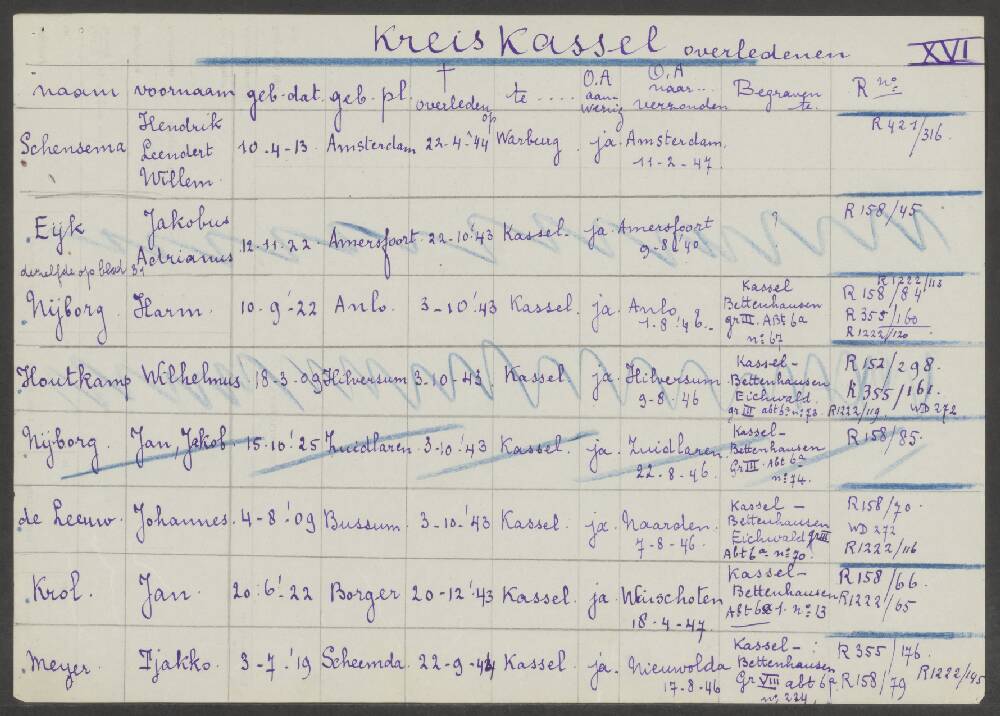 Kreis Kassel overledenen XVI
naam voornaam geb-dat. geb. pl. † overleden op te .... O.A aanwezig O.A naar... verzonden Begraven te. R no
Schensema Hendrik Leendert Willem 10-4-13. Amsterdam 22-4-'44 Warburg. ja. Amsterdam. 11-2-47 R 421/316.
Eijk Jakobus Adrianus 12-11-22 Amersfoort 22-10-'43 Kassel. ja Amersfoort 9-8-'40 ? R 158/45
dezelfde op blad
Nijborg Harm. 10-9-'22 Anlo. 3-10-'43 Kassel. ja. Anlo, 1-8-'46.- Kassel Bettenhausen gr III. Abt 6a no 67 R1222/113 R 158/84 R 355/160 R1222/120
Houtkamp Wilhelmus 18-3-09 Hilversum 3-10-43 Kassel ja. Hilversum 9-8-46 Kassel- Bettenhausen Eichwald. gr III abt 6a no 73. R 152/298 R 355/161. R1222/119 WD 272
Nijborg. Jan, Jakob 15-10-'25 Zuidlaren 3-10-'43 Kassel. ja. Zuidlaren. 22-8-46. Kassel- Bettenhausen Gr III. Abt 6a no 74. R 158/85.
de Leeuw. Johannes. 4-8-'09 Bussum. 3-10-'43 Kassel. ja. Naarden. 7-8-46. Kassel- Bettenhausen Eichwald gr III Abt 6a no 70. R158/70. WD 272 R1222/116
Krol. Jan. 20-6-'22 Borger 20-12-'43 Kassel. ja Winschoten 18-4-47 Kassel- Bettenhausen no 13 R158/66. R1222/65
Meyer. Tjakko. 3-7-'19 Scheemda. 22-9-44 Kassel. ja. Nieuwolda 17-8-46 Kassel- Bettenhausen Gr VIII abt 6a no 224 R 355/176. R158/79 R1222/145